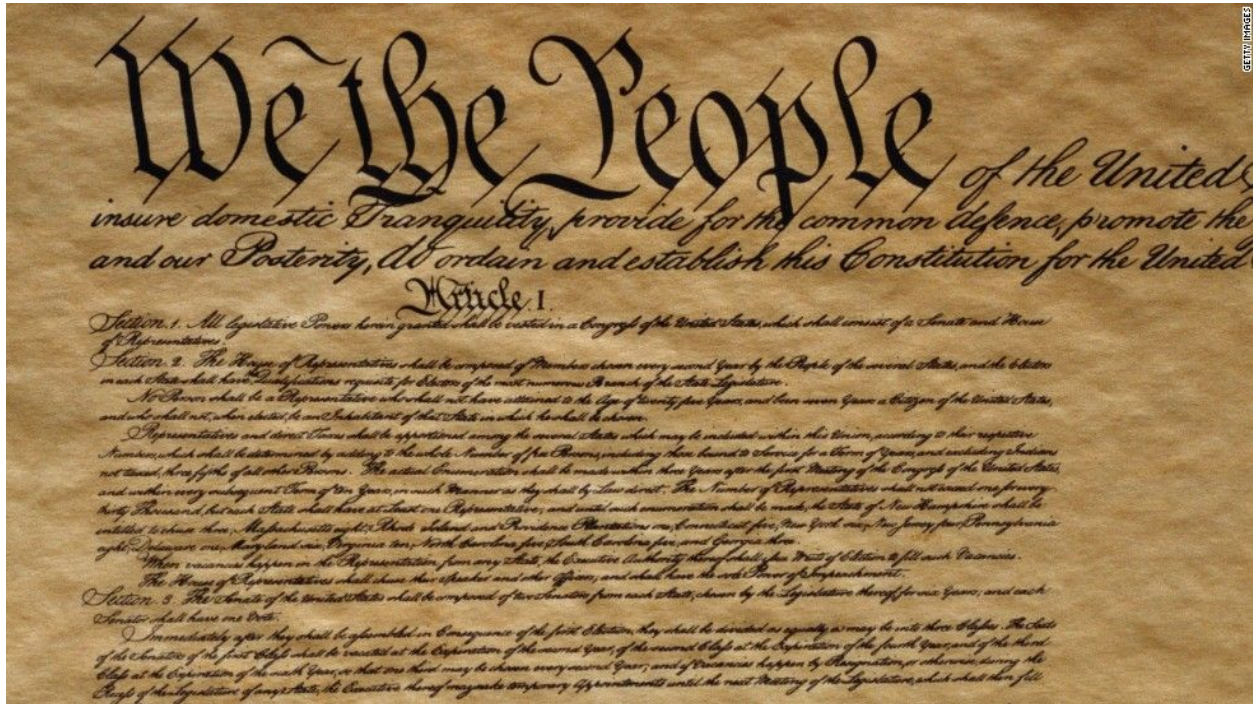 GETTY IMAGES
We the People of the United
insure domestic Tranquility, provide for the common defence, promote the
and our Posterity, do ordain and establish this Constitution for the United
Article. I.
Section. 1. All legislative Powers herein granted shall be vested in a Congress of the United States, which shall consist of a Senate and House
of Representatives.
Section. 2. The House of Representatives shall be composed of Members chosen every second Year by the People of the several States, and the Electors
in each State shall have Qualifications requisite for Electors of the most numerous Branch of the State Legislature.
No Person shall be a Representative who shall not have attained to the Age of twenty five Years, and been seven Years a Citizen of the United States,
and who shall not, when elected, be an Inhabitant of that State in which he shall be chosen.
Representatives and direct Taxes shall be apportioned among the several States which may be included within this Union, according to their respective
Numbers, which shall be determined by adding to the whole Number of free Persons, including those bound to Service for a Term of Years, and excluding Indians
not taxed, three fifths of all other Persons. The actual Enumeration shall be made within three Years after the first Meeting of the Congress of the United States,
and within every subsequent Term of ten Years, in such Manner as they shall by Law direct. The Number of Representatives shall not exceed one for every
thirty Thousand, but each State shall have at Least one Representative; and until such enumeration shall be made, the State of New Hampshire shall be
entitled to chuse three, Massachusetts eight, Rhode Island and Providence Plantations one, Connecticut five, New York six, New Jersey four, Pennsylvania
eight, Delaware one, Maryland six, Virginia ten, North Carolina five, South Carolina five, and Georgia three.
When vacancies happen in the Representation from any State, the Executive Authority thereof shall issue Writs of Election to fill such Vacancies.
The House of Representatives shall chuse their Speaker and other Officers; and shall have the sole Power of Impeachment.
Section. 3. The Senate of the United States shall be composed of two Senators from each State, chosen by the Legislature thereof, for six Years; and each
Senator shall have one Vote.
Immediately after they shall be assembled in Consequence of the first Election, they shall be divided as equally as may be into three Classes. The Seats
of the Senators of the first Class shall be vacated at the Expiration of the second Year, of the second Class at the Expiration of the fourth Year, and of the third
Class at the Expiration of the sixth Year, so that one third may be chosen every second Year; and if Vacancies happen by Resignation, or otherwise, during the
Recess of the Legislature of any State, the Executive thereof may make temporary Appointments until the next Meeting of the Legislature, which shall then fill